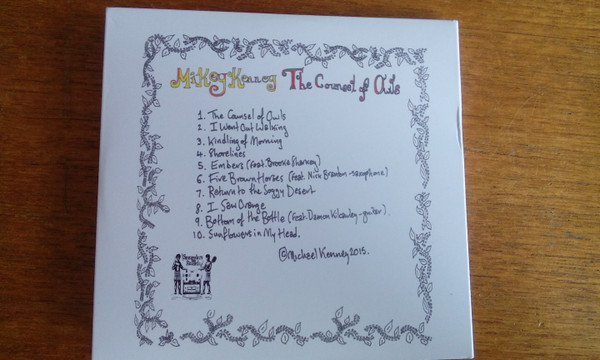 Mikey Kenney The Counsel of Owls
1. The Counsel of Owls
2. I Went Out Walking
3. Kindling of Morning
4. Shorelines
5. Embers (feat. Brooke Sharkey)
6. Five Brown Horses (feat. Nick Branton - saxophone)
7. Return to the Soggy Desert
8. I Saw Orange
9. Bottom of the Bottle (feat. Damon - guitar).
10. Sunflowers in My Head.
©Michael Kenney 2015.